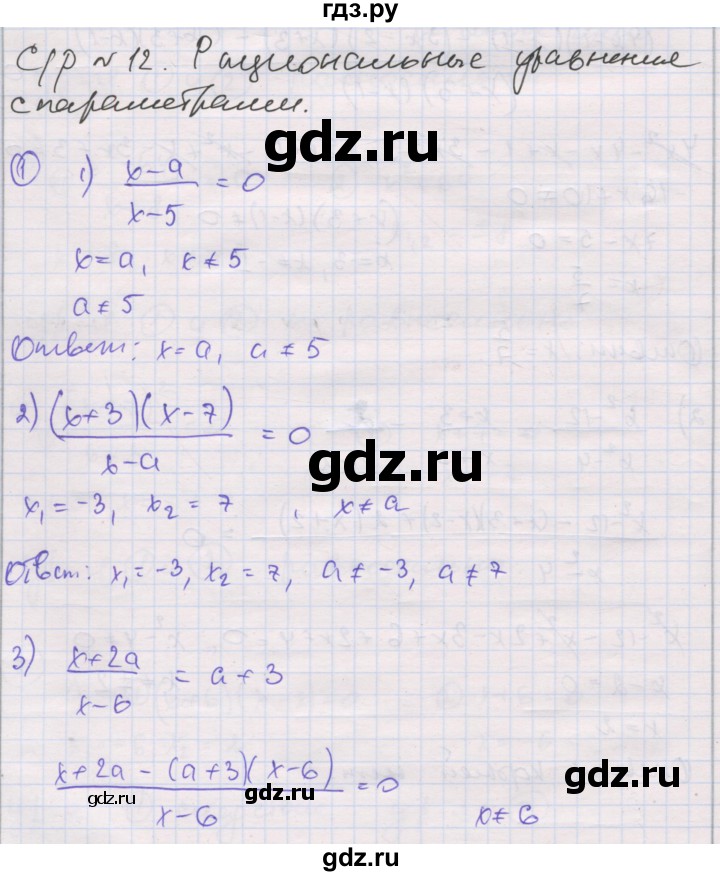 гдз.ру
С/р №12. Рациональные уравнения
с параметрами.
gdz.ru
① 1) (x-a)/(x-5) = 0
x = a, x ≠ 5
a ≠ 5
gdz.ru
Ответ: x = a, a ≠ 5
2) ((x+3)(x-7))/(x-a) = 0
gdz.ru
x₁ = -3, x₂ = 7, x ≠ a
gdz.ru
Ответ: x₁ = -3, x₂ = 7, a ≠ -3, a ≠ 7
3) (x+2a)/(x-6) = a+3
gdz.ru
(x+2a-(a+3)(x-6))/(x-6) = 0
gdz.ru
gdz.ru
x ≠ 6
gdz.ru
gdz.ru